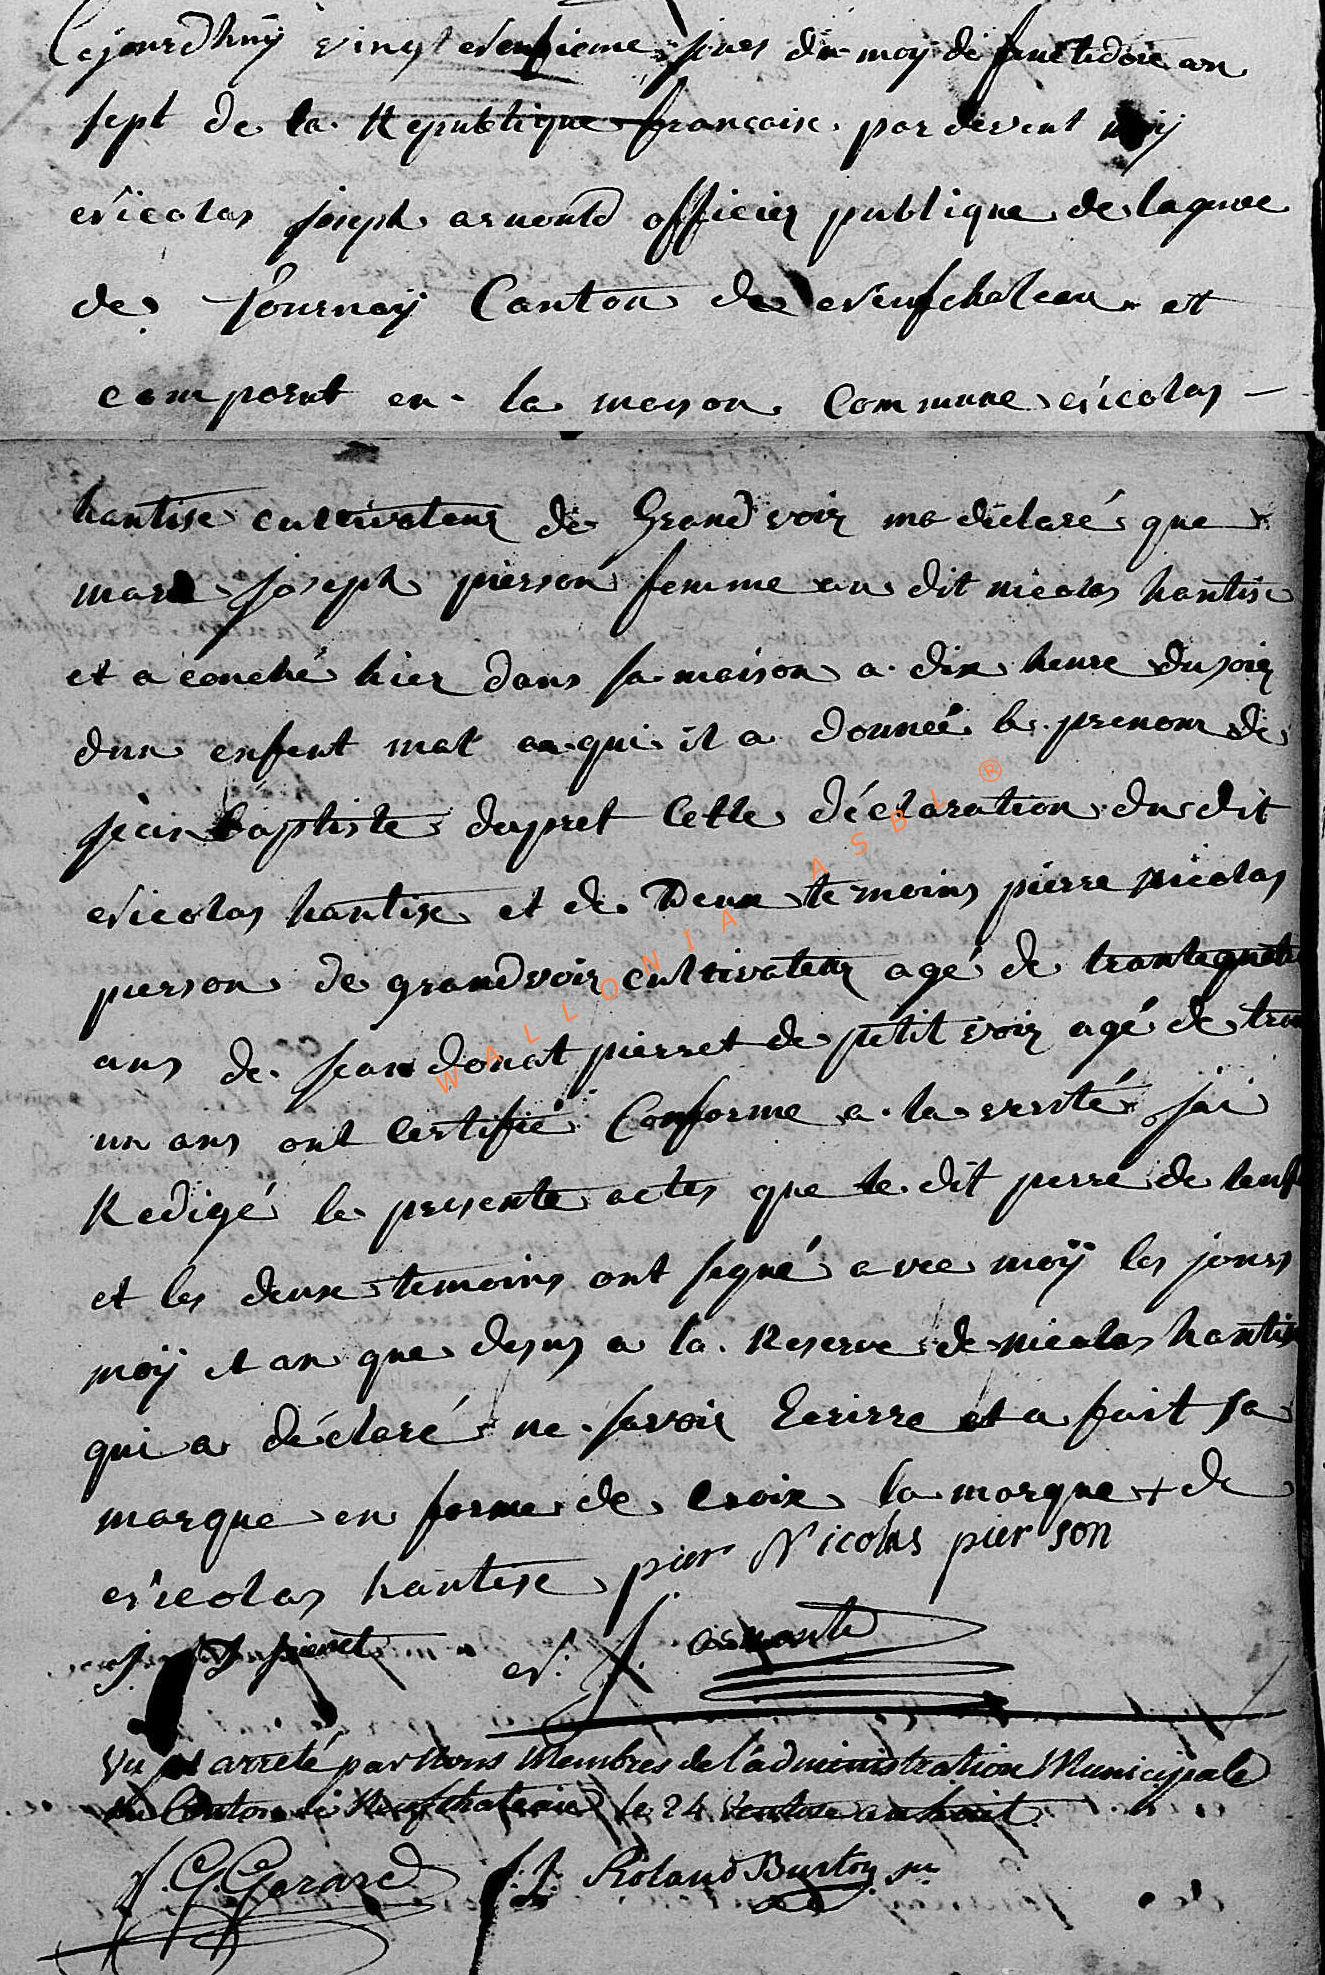 Cejourdhuÿ vingt neufieme jours du moy de fructidore an
sept de la Republique françoise. par devent moij
nicolas joseph arnould officier publique de lagence
de Tournaÿ Canton de neufchateau et
comparut en la meson Commune nicolas -
hantise cultivateur de Grandvoir ma déclaré que
mare joseph pierson femme au dit nicolas hantise
et a couché hier dans sa maison a dix heure du soir
dun enfent mal au qui il a donneé le prenom de
jean baptiste dapret Cette déclaration du dit
nicolas hantise et de Deux temoins pierre nicolas
pierson de grandvoir cultivateur agé de trantequatre
ans de jean donat pierret de petit voir agé de trente
un ans ont Certifié Conforme a la verité jai
Redigé le presente actes que le dit perre de lenf
et les deux temoins ont signé avec moÿ les jours
moÿ et an que desus a la Reserve de nicolas hantise
qui a déclaré ne savoir Ecrirre et a fait sa
marque en forme de croix la marque + de
nicolas hantise pier Nicolas pierson
J D pierret n: J. arnould
Vu et arreté par nous Membres de l'administration Municipale
du Canton de Neufchateau le 24 ventose an huit
J. G. Gerard J. J. Roland Burton
WALLONIA ASBL ®